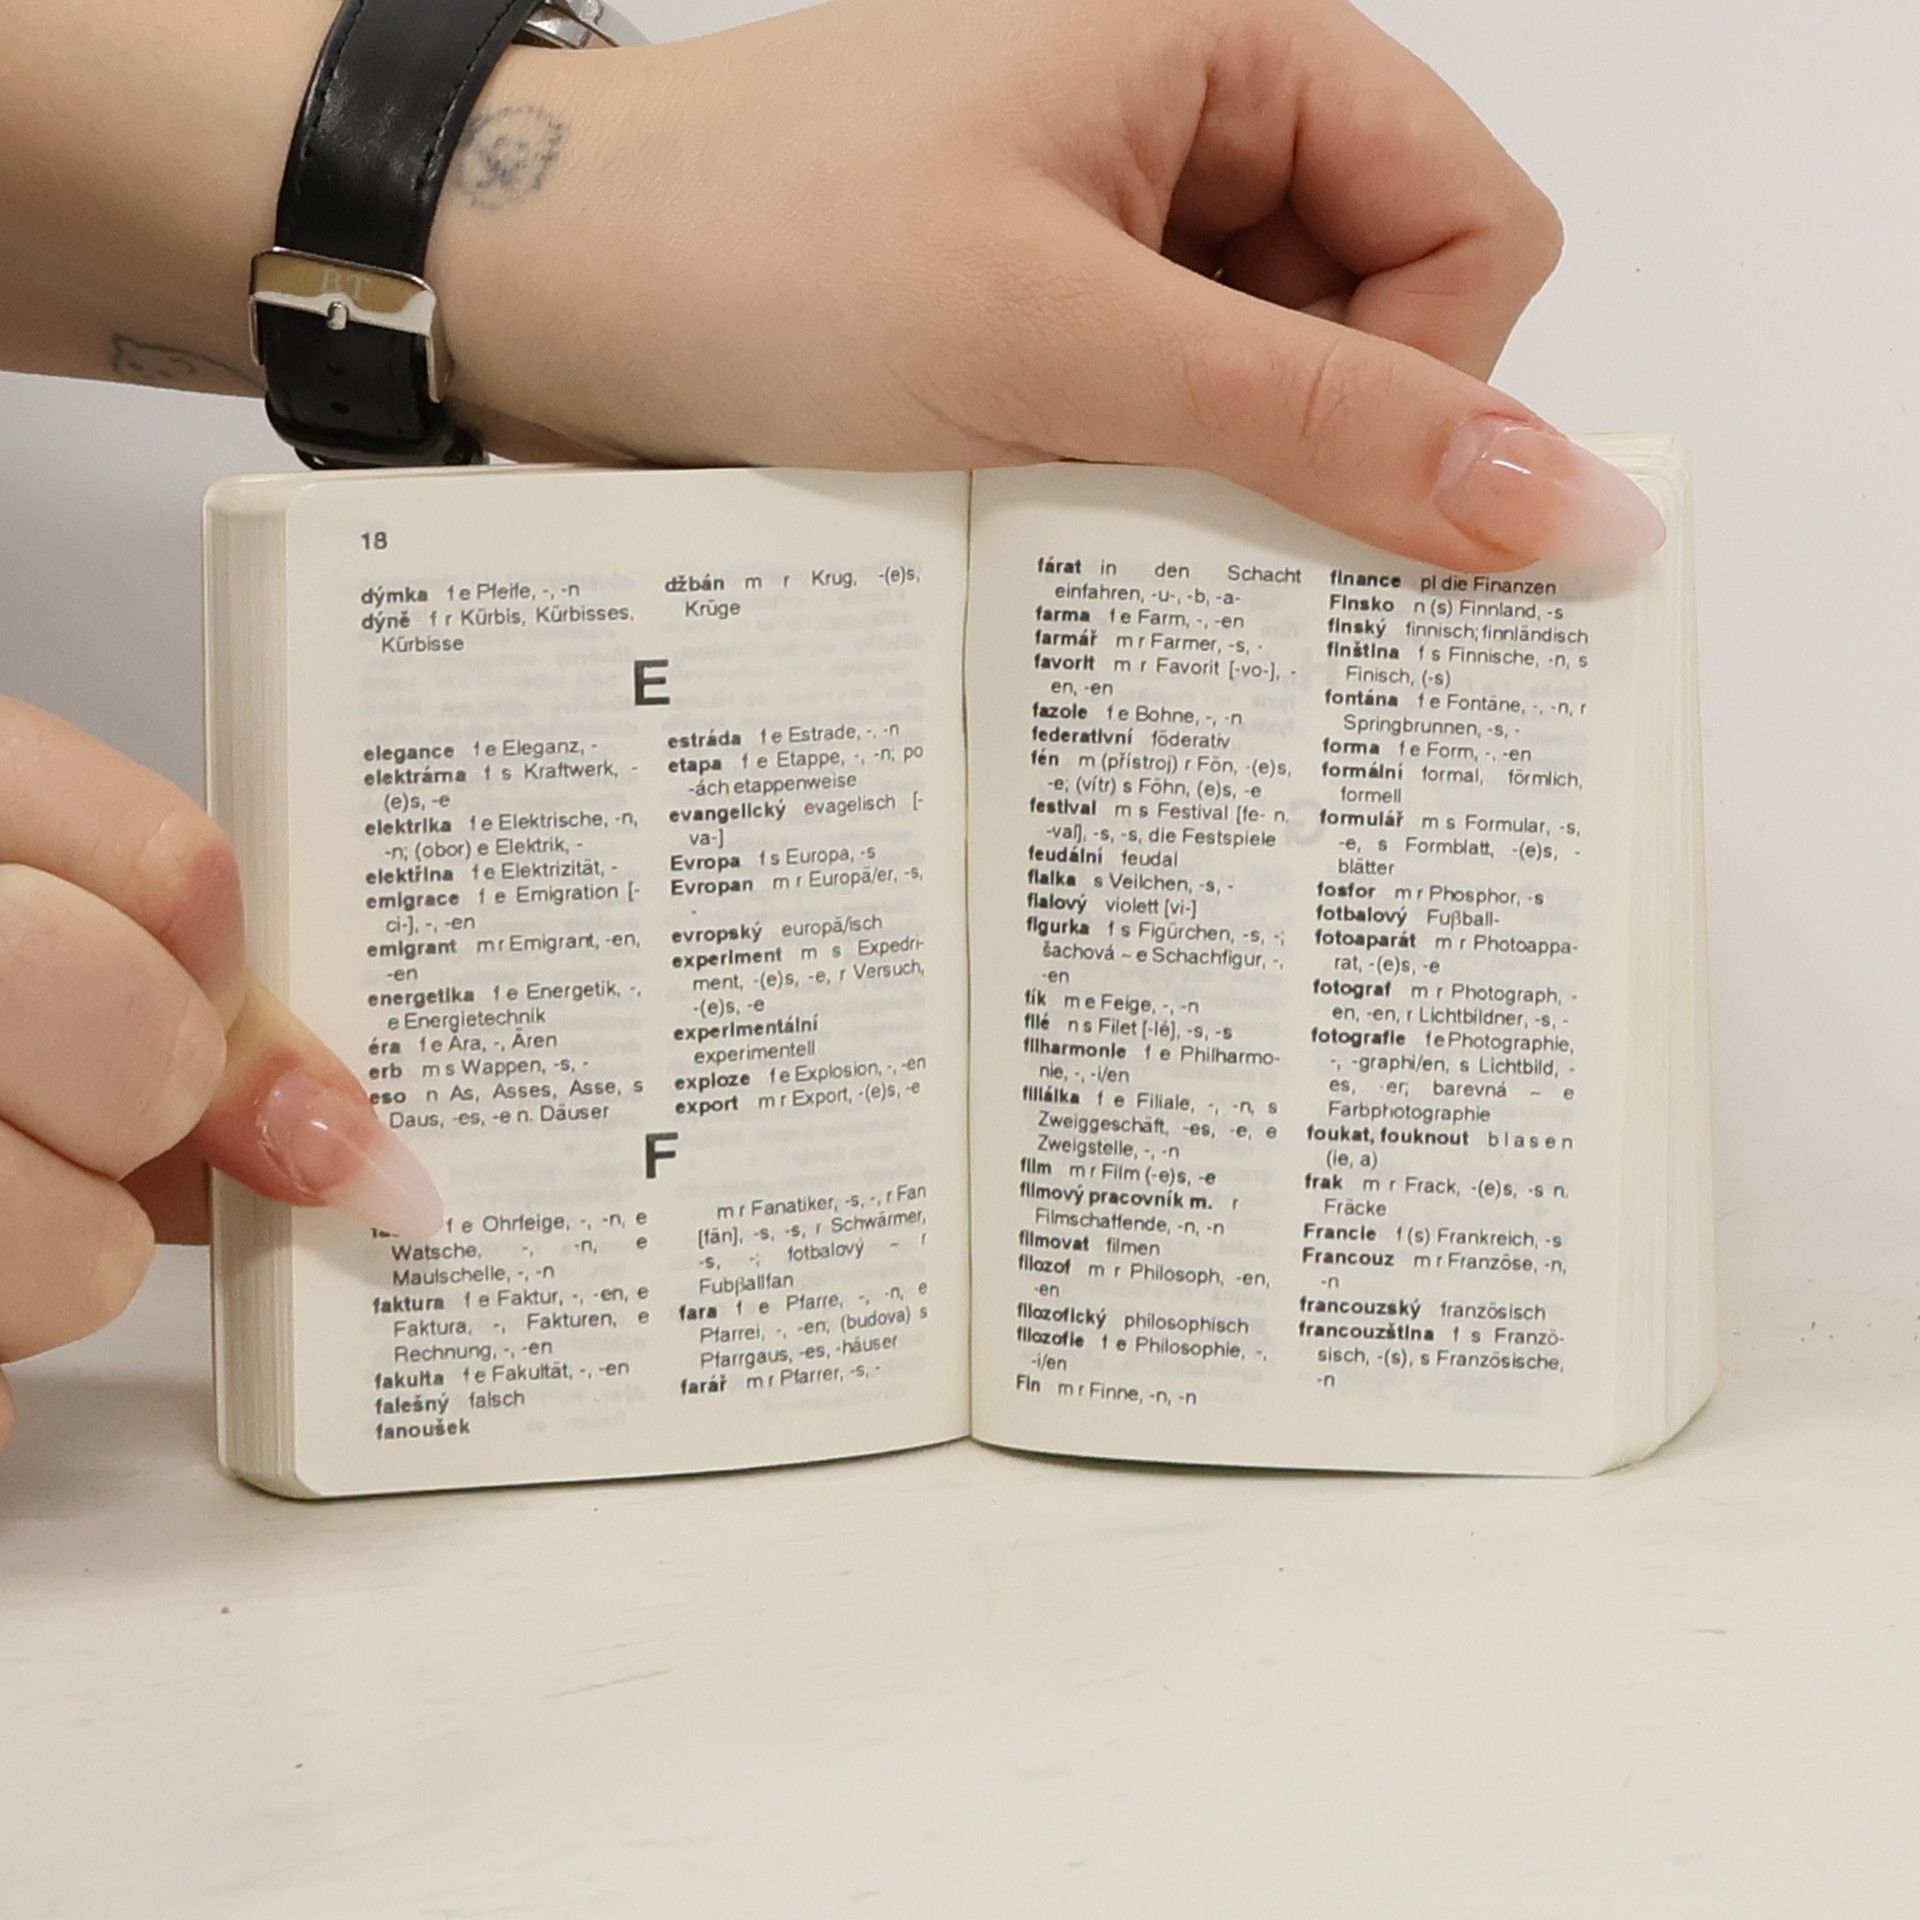 BT
18
dýmka f e Pfeife, -, -n
dýně f r Kürbis, Kürbisses,
Kürbisse
džbán m r Krug, -(e)s,
Krüge
E
elegance f e Eleganz, -
elektrárna f s Kraftwerk, -
(e)s, -e
elektrika f e Elektrische, -n,
-n; (obor) e Elektrik, -
elektřina f e Elektrizität, -
emigrace f e Emigration [-
ci-], -, -en
emigrant m r Emigrant, -en,
-en
energetika f e Energetik, -,
e Energietechnik
éra f e Ära, -, Ären
erb m s Wappen, -s, -
eso n As, Asses, Asse, s
Daus, -es, -e n. Däuser
estráda f e Estrade, -, -n
etapa f e Etappe, -, -n; po
-ách etappenweise
evangelický evagelisch [-
va-]
Evropa f s Europa, -s
Evropan m r Europä/er, -s,
-
evropský europä/isch
experiment m s Expedri-
ment, -(e)s, -e, r Versuch,
-(e)s, -e
experimentální
experimentell
exploze f e Explosion, -, -en
export m r Export, -(e)s, -e
F
f e Ohrfeige, -, -n, e
Watsche, -, -n, e
Maulschelle, -, -n
faktura f e Faktur, -, -en, e
Faktura, -, Fakturen, e
Rechnung, -, -en
fakulta f e Fakultät, -, -en
falešný falsch
fanoušek
m r Fanatiker, -s, -, r Fan
[fän], -s, -s, r Schwärmer,
-s, -; fotbalový ~ r
Fubβallfan
fara f e Pfarre, -, -n, e
Pfarrei, -, -en; (budova) s
Pfarrgaus, -es, -häuser
farář m r Pfarrer, -s, -
fárat in den Schacht
einfahren, -u-, -b, -a-
farma f e Farm, -, -en
farmář m r Farmer, -s, -
favorit m r Favorit [-vo-], -
en, -en
fazole f e Bohne, -, -n
federativní föderativ
fén m (přístroj) r Fön, -(e)s,
-e; (vítr) s Föhn, (e)s, -e
festival m s Festival [fe- n.
-val], -s, -s, die Festspiele
feudální feudal
fialka s Veilchen, -s, -
fialový violett [vi-]
figurka f s Figürchen, -s, -;
šachová ~ e Schachfigur, -,
-en
fík m e Feige, -, -n
filé n s Filet [-lé], -s, -s
filharmonie f e Philharmo-
nie, -, -i/en
filiálka f e Filiale, -, -n, s
Zweiggeschäft, -es, -e, e
Zweigstelle, -, -n
film m r Film (-e)s, -e
filmový pracovník m. r
Filmschaffende, -n, -n
filmovat filmen
filozof m r Philosoph, -en,
-en
filozofický philosophisch
filozofie f e Philosophie, -,
-i/en
Fin m r Finne, -n, -n
finance pl die Finanzen
Finsko n (s) Finnland, -s
finský finnisch; finnländisch
finština f s Finnische, -n, s
Finisch, (-s)
fontána f e Fontäne, -, -n, r
Springbrunnen, -s, -
forma f e Form, -, -en
formální formal, förmlich,
formell
formulář m s Formular, -s,
-e, s Formblatt, -(e)s, -
blätter
fosfor m r Phosphor, -s
fotbalový Fuβball-
fotoaparát m r Photoappa-
rat, -(e)s, -e
fotograf m r Photograph, -
en, -en, r Lichtbildner, -s, -
fotografie f e Photographie,
-, -graphi/en, s Lichtbild, -
es, -er; barevná ~ e
Farbphotographie
foukat, fouknout blasen
(ie, a)
frak m r Frack, -(e)s, -s n.
Fräcke
Francie f (s) Frankreich, -s
Francouz m r Französe, -n,
-n
francouzský französisch
francouzština f s Franzö-
sisch, -(s), s Französische,
-n